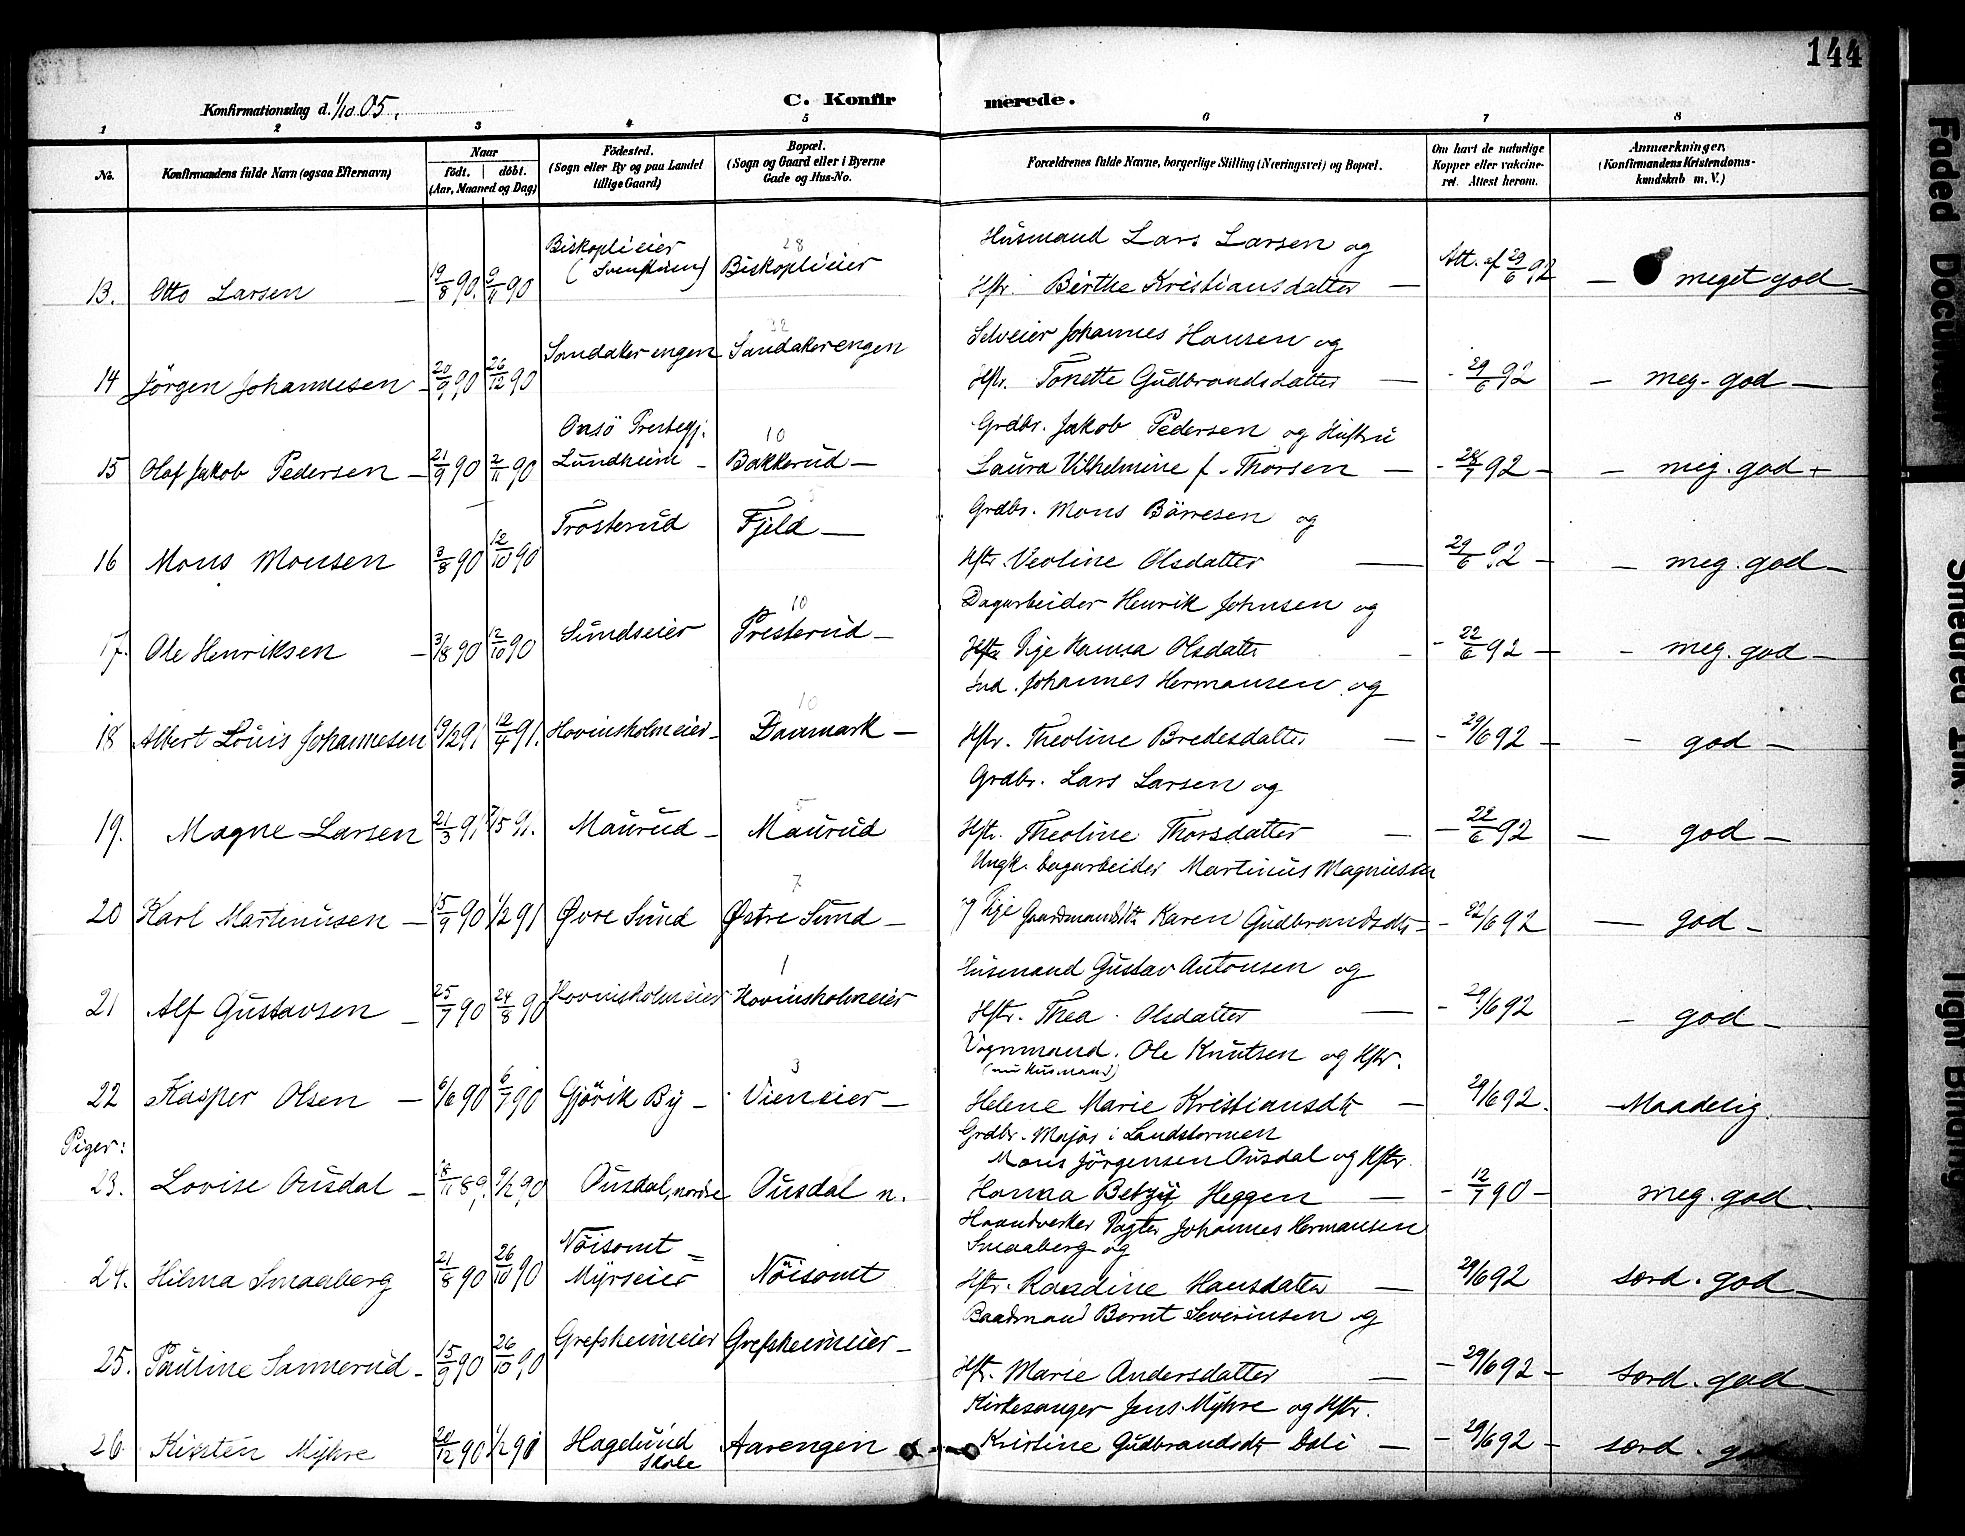 144
Konfirmationsdag d. 1/10 05.
C. Konfirmerede.
1 2 3 4 5 6 7 8
No. Konfirmandens fulde Navn (ogsaa Efternavn) Naar født. døbt. (Aar, Maaned og Dag) Fødested. (Sogn eller By og paa Landet tillige Gaard) Bopæl. (Sogn og Gaard eller i Byerne Gade og Hus-No. Forældrenes fulde Navne, borgerlige Stilling (Næringsvei) og Bopæl. Om havt de naturlige Kopper eller vakcineret. Attest herom. Anmærkninger. (Konfirmandens Kristendomskundskab m. V.)
Biskoplieier 28 Husmand Lars Larsen og
13. Otto Larsen 19/8 90. 9/11 90 Biskoplieier Hstr. Birthe Kristiansdatter — Att. af 29/6 92 — meget god —
Sandakerengen 32 Sandakerengen Selveier Johannes Hansen og
14 Jörgen Johannesen — 20/9 90 26/12 90 Hstr. Tonette Gudbrandsdatter — - 29/6 92 — meg. god —
Onsö Prestegj. 10 Grdbr. Jakob Pedersen og Hustru
15 Olaf Jakob Pedersen — 21/9 90 2/11 90 Lundheim — Bakkerud — Laura Vilhelmine f. Thorsen — - 28/7 92 — — meg. god +
Trosterud Fjeld — Grdbr. Mons Börresen og
16 Mons Monsen 3/8 90 12/10 90 Hstr. Veoline Olsdatter — 29/6 92 — — meg. god —
Sundseier 10 Presterud — Dagarbeider Henrik Johnsen og
17. Ole Henriksen — 3/8 90 12/10 90 Pige Hansa Olsdattr — - 22/6 92 — — meg. god —
10 Ind. Johannes Hermansen og
18 Albert Louis Johannesen 19/2 91 12/4 91. Hovinsholmeier — Danmark — Hstr. Theoline Bredesdatter — - 29/6 92 — — god —
5 Grdbr. Lars Larsen og
19. Magne Larsen 21/3 91 7/5 91. Maurud — Maurud Hstr. Theoline Thorsdatter — - 22/6 92 — god —
7 Ungk. dagarbeider Martinus Magnussen
20 Karl Martinusen — 15/9 90 1/2 91 Øvre Sund Østre Sund — og Pige Gaardmandsdtr Karen Gudbrandsdtr — - 22/6 92 — god —
1 Husmand Gustav Antonsen og
21 Alf Gustavsen — 25/7 90 24/8 90 Hovinsholmeier Hovinsholmeier Hstr. Thea Olsdatter — - 29/6 92 — god —
3 Vognmand. Ole Knutsen og Hstr.
(nu Husmand)
22 Kasper Olsen — 6/6 90 6/7 90 Gjövik By — Vieneier — Helene Marie Kristiansdtr — 29/6 92. — Maadelig.
Piger:
Grdbr. Major i Landstormen
Mons Jörgensen Ousdal og Hstr.
23. Lovise Ousdal — 18/11 89. 9/2 90 Ousdal, nordre Ousdal n. Hanna Betzy Heggen — - 12/7 90 — meg. god.
Haandverker Pagter Johannes Hermansen
Nöisomt = Smaaberg og
24. Hilma Smaaberg 21/8 90 26/10 90 Myrseier Nöisomt Hstr. Raadine Hansdatter — 29/6 92 særd. god —
Grefsheimeier Grefsheimeier — Baadmand Bernt Severinsen og
25. Pauline Sannerud — 15/9 90 26/10 90 Hstr. Marie Andersdatter — - 29/6 92 — særd. god —
Kirkesanger Jens Myhre og Hstr.
26 Kirsten Myhre 20/12 90 1/2 91 Hagelund Skole Aarengen Kristine Gudbrandsdtr Dali — - 29/6 92 — særd. god
Faded Document
Smeared Ink.
Tight Binding